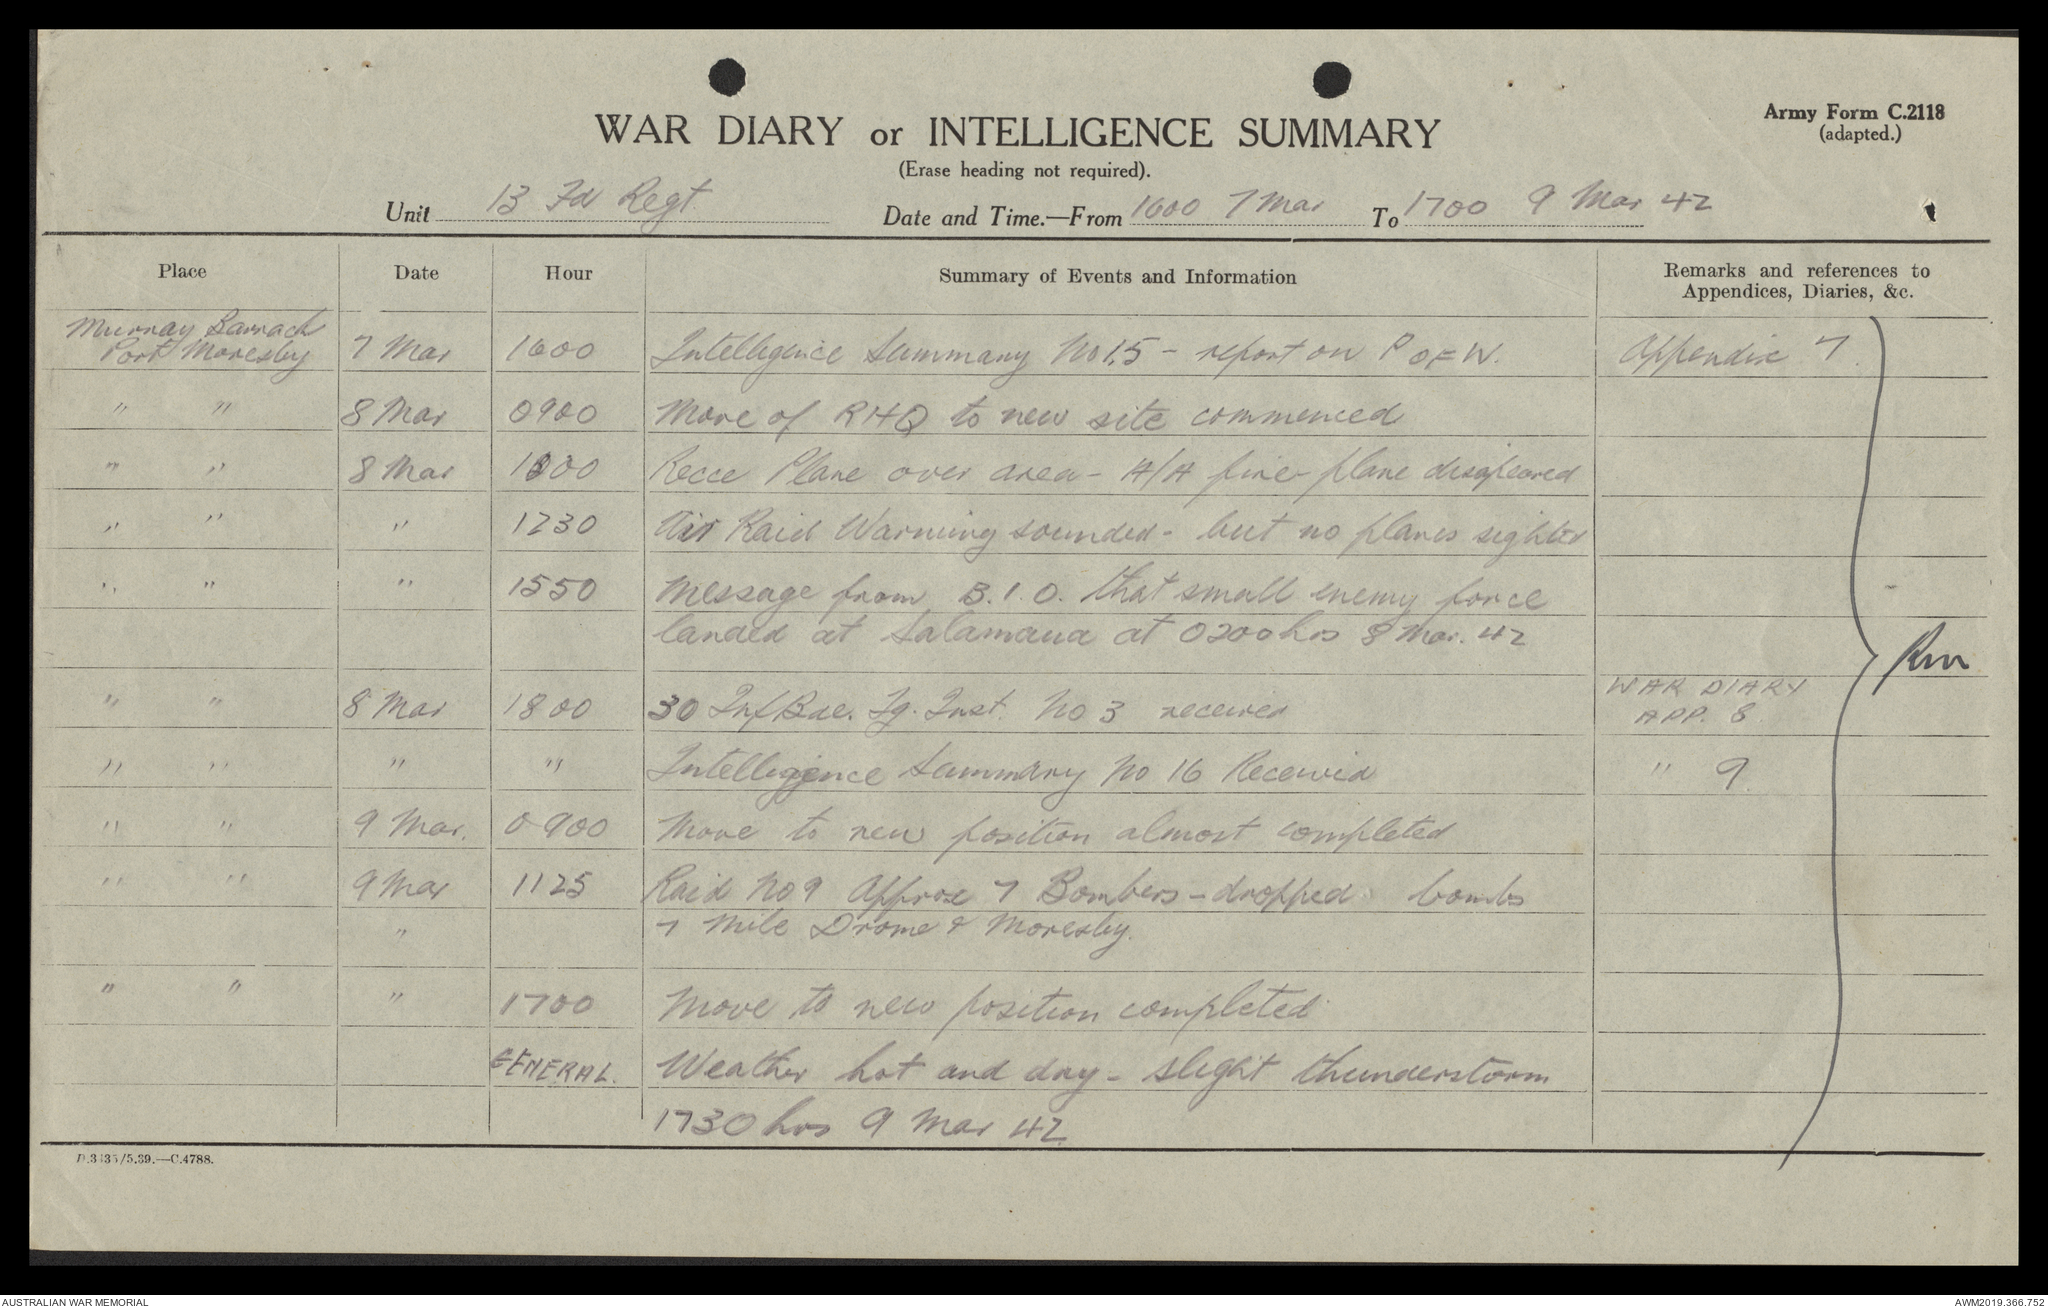 Army Form C.2118
(adapted.)
WAR DIARY or INTELLIGENCE SUMMARY
(Erase heading not required).
Unit 13 Fd Regt Date and Time.—From 1600 7 Mar To 1700 9 Mar 42
Place Date Hour Summary of Events and Information Remarks and references to
Appendices, Diaries, &c.
Murray Barrack
Port Moresby 7 Mar 1600 Intelligence Summary No 15 - report on P OF W. Appendix 7
" " 8 Mar 0900 Move of RHQ to new site commenced
" " 8 Mar 1000 Recce Plane over area - A/A fire - plane disapeared
" " " 1230 Air Raid Warning sounded - but no planes sighted
" " " 1550 Message from B.I.O. that small enemy force
landed at Salamaua at 0200 hrs 8 Mar. 42
Rm
WAR DIARY
" " 8 Mar 1800 30 Inf Bde. Tg. Inst. No 3 received APP. 8.
" " " " Intelligence Summary No 16 Received " 9.
" " 9 Mar. 0900 Move to new position almost completed
" " 9 Mar 1125 Raid No 9 Approx 7 Bombers - dropped bombs
" 7 Mile Drome & Moresby.
" " " 1700 Move to new position completed
GENERAL. Weather hot and dry - slight thunderstorm
1730 hrs 9 Mar 42
D.3435/5.39.—C.4788.
AUSTRALIAN WAR MEMORIAL AWM2019.366.752